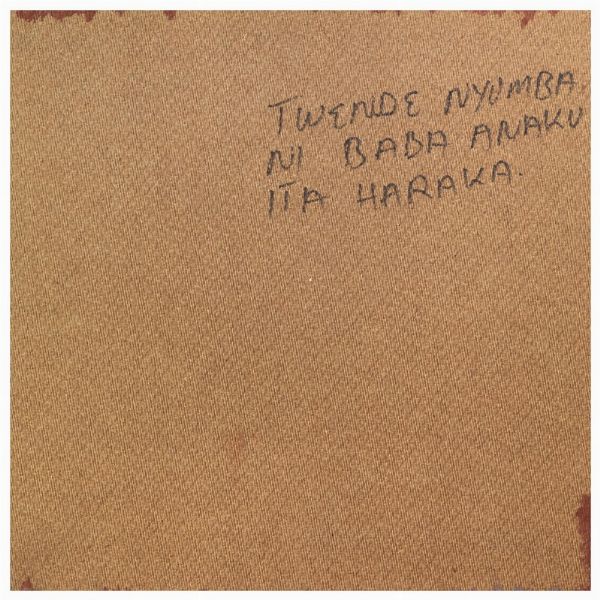 TWENDE NYUMBA
NI BABA ANAKU
ITA HARAKA.